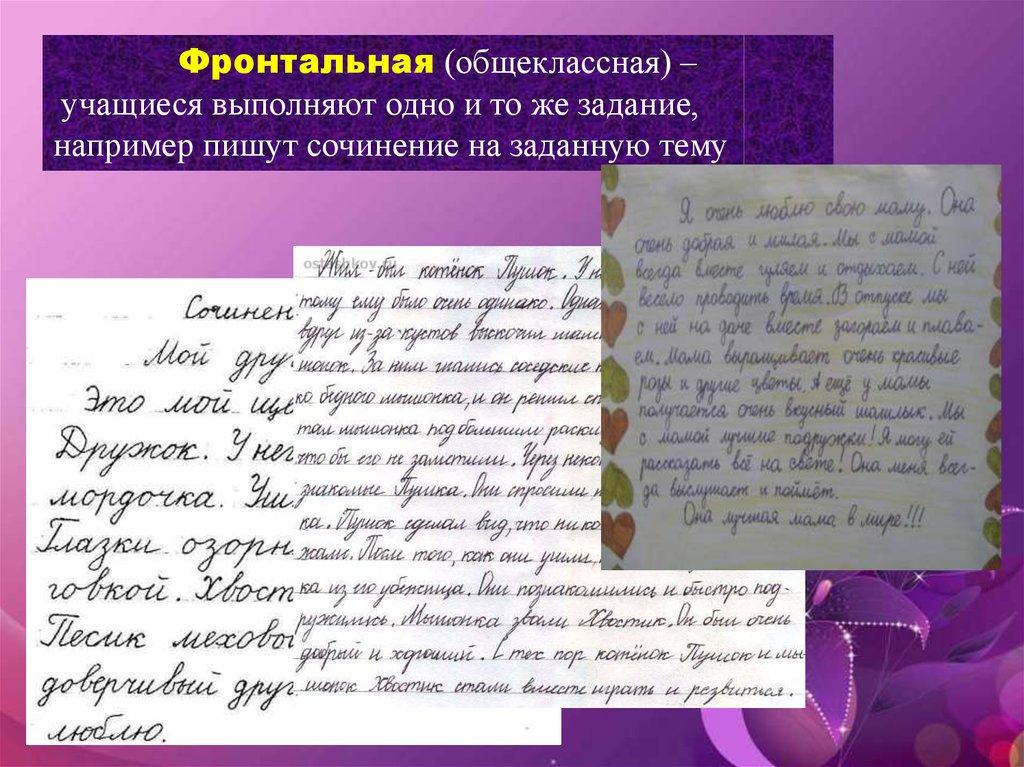 Фронтальная (общеклассная) –
учащиеся выполняют одно и то же задание,
например пишут сочинение на заданную тему
Сочинен
Мой дру
Это мой ще
Дружок. У нег
мордочка. Уш
Глазки озорн
говкой. Хвост
Песик мехово
доверчивый друг
люблю.
Жил-был котёнок Пушок. У н
тому ему было очень одиноко. Одна
вдруг из-за кустов выскочил мал
шонок. За ним гнались соседские
ко бедного мышонка, и он решил сп
тал мышонка под большим раски
что бы его не заметили. Через неко
знакомые Пушка. Они спросили
ка. Пушок сделал вид, что нико
жали. После того, как они ушли,
ка из его убежища. Они познакомились и быстро под-
ружились. Мышонка звали Хвостик. Он был очень
добрый и хороший. С тех пор котёнок Пушок и мы
шонок Хвостик стали вместе играть и резвиться.
Я очень люблю свою маму. Она
очень добрая и милая. Мы с мамой
всегда вместе гуляем и отдыхаем. С ней
весело проводить время. В отпуске мы
с ней на даче вместе загораем и плава-
ем. Мама выращивает очень красивые
розы и другие цветы. А ещё у мамы
получается очень вкусный шашлык. Мы
с мамой лучшие подружки! Я могу ей
рассказать всё на свете! Она меня всег-
да выслушает и поймёт.
Она лучшая мама в мире!!!